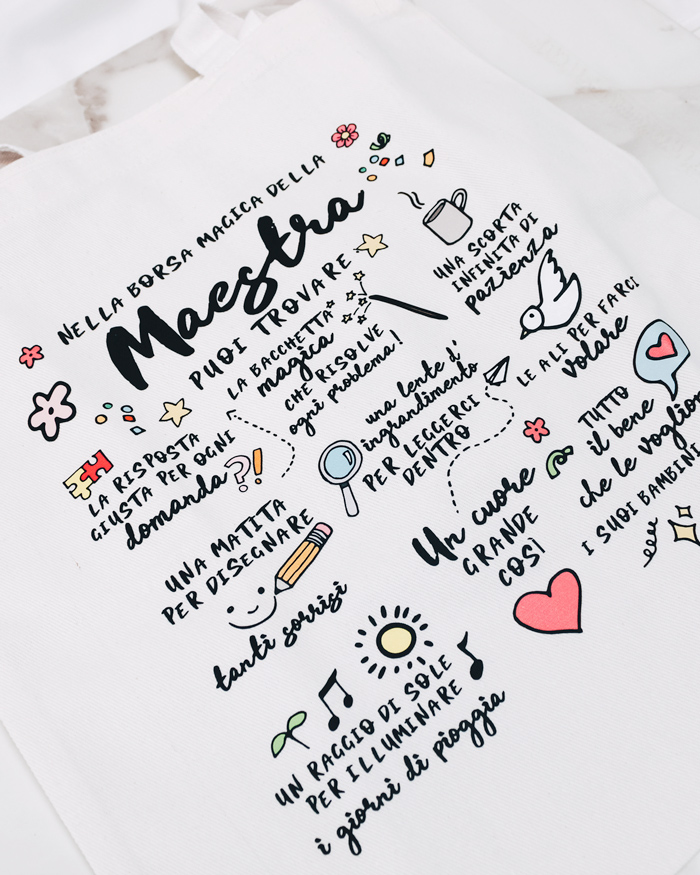 NELLA BORSA MAGICA DELLA
Maestra
PUOI TROVARE
UNA SCORTA
INFINITA DI
pazienza
LA BACCHETTA
magica
CHE RISOLVE
ogni problema!
LE ALI PER FARCI
volare
LA RISPOSTA
GIUSTA PER OGNI
domanda?!
una lente d'
ingrandimento
PER LEGGERCI
DENTRO
TUTTO
il bene
che le vogliono
I SUOI BAMBINI
UNA MATITA
PER DISEGNARE
tanti sorrisi
Un cuore
GRANDE
COSÌ
UN RAGGIO DI SOLE
PER ILLUMINARE
i giorni di pioggia